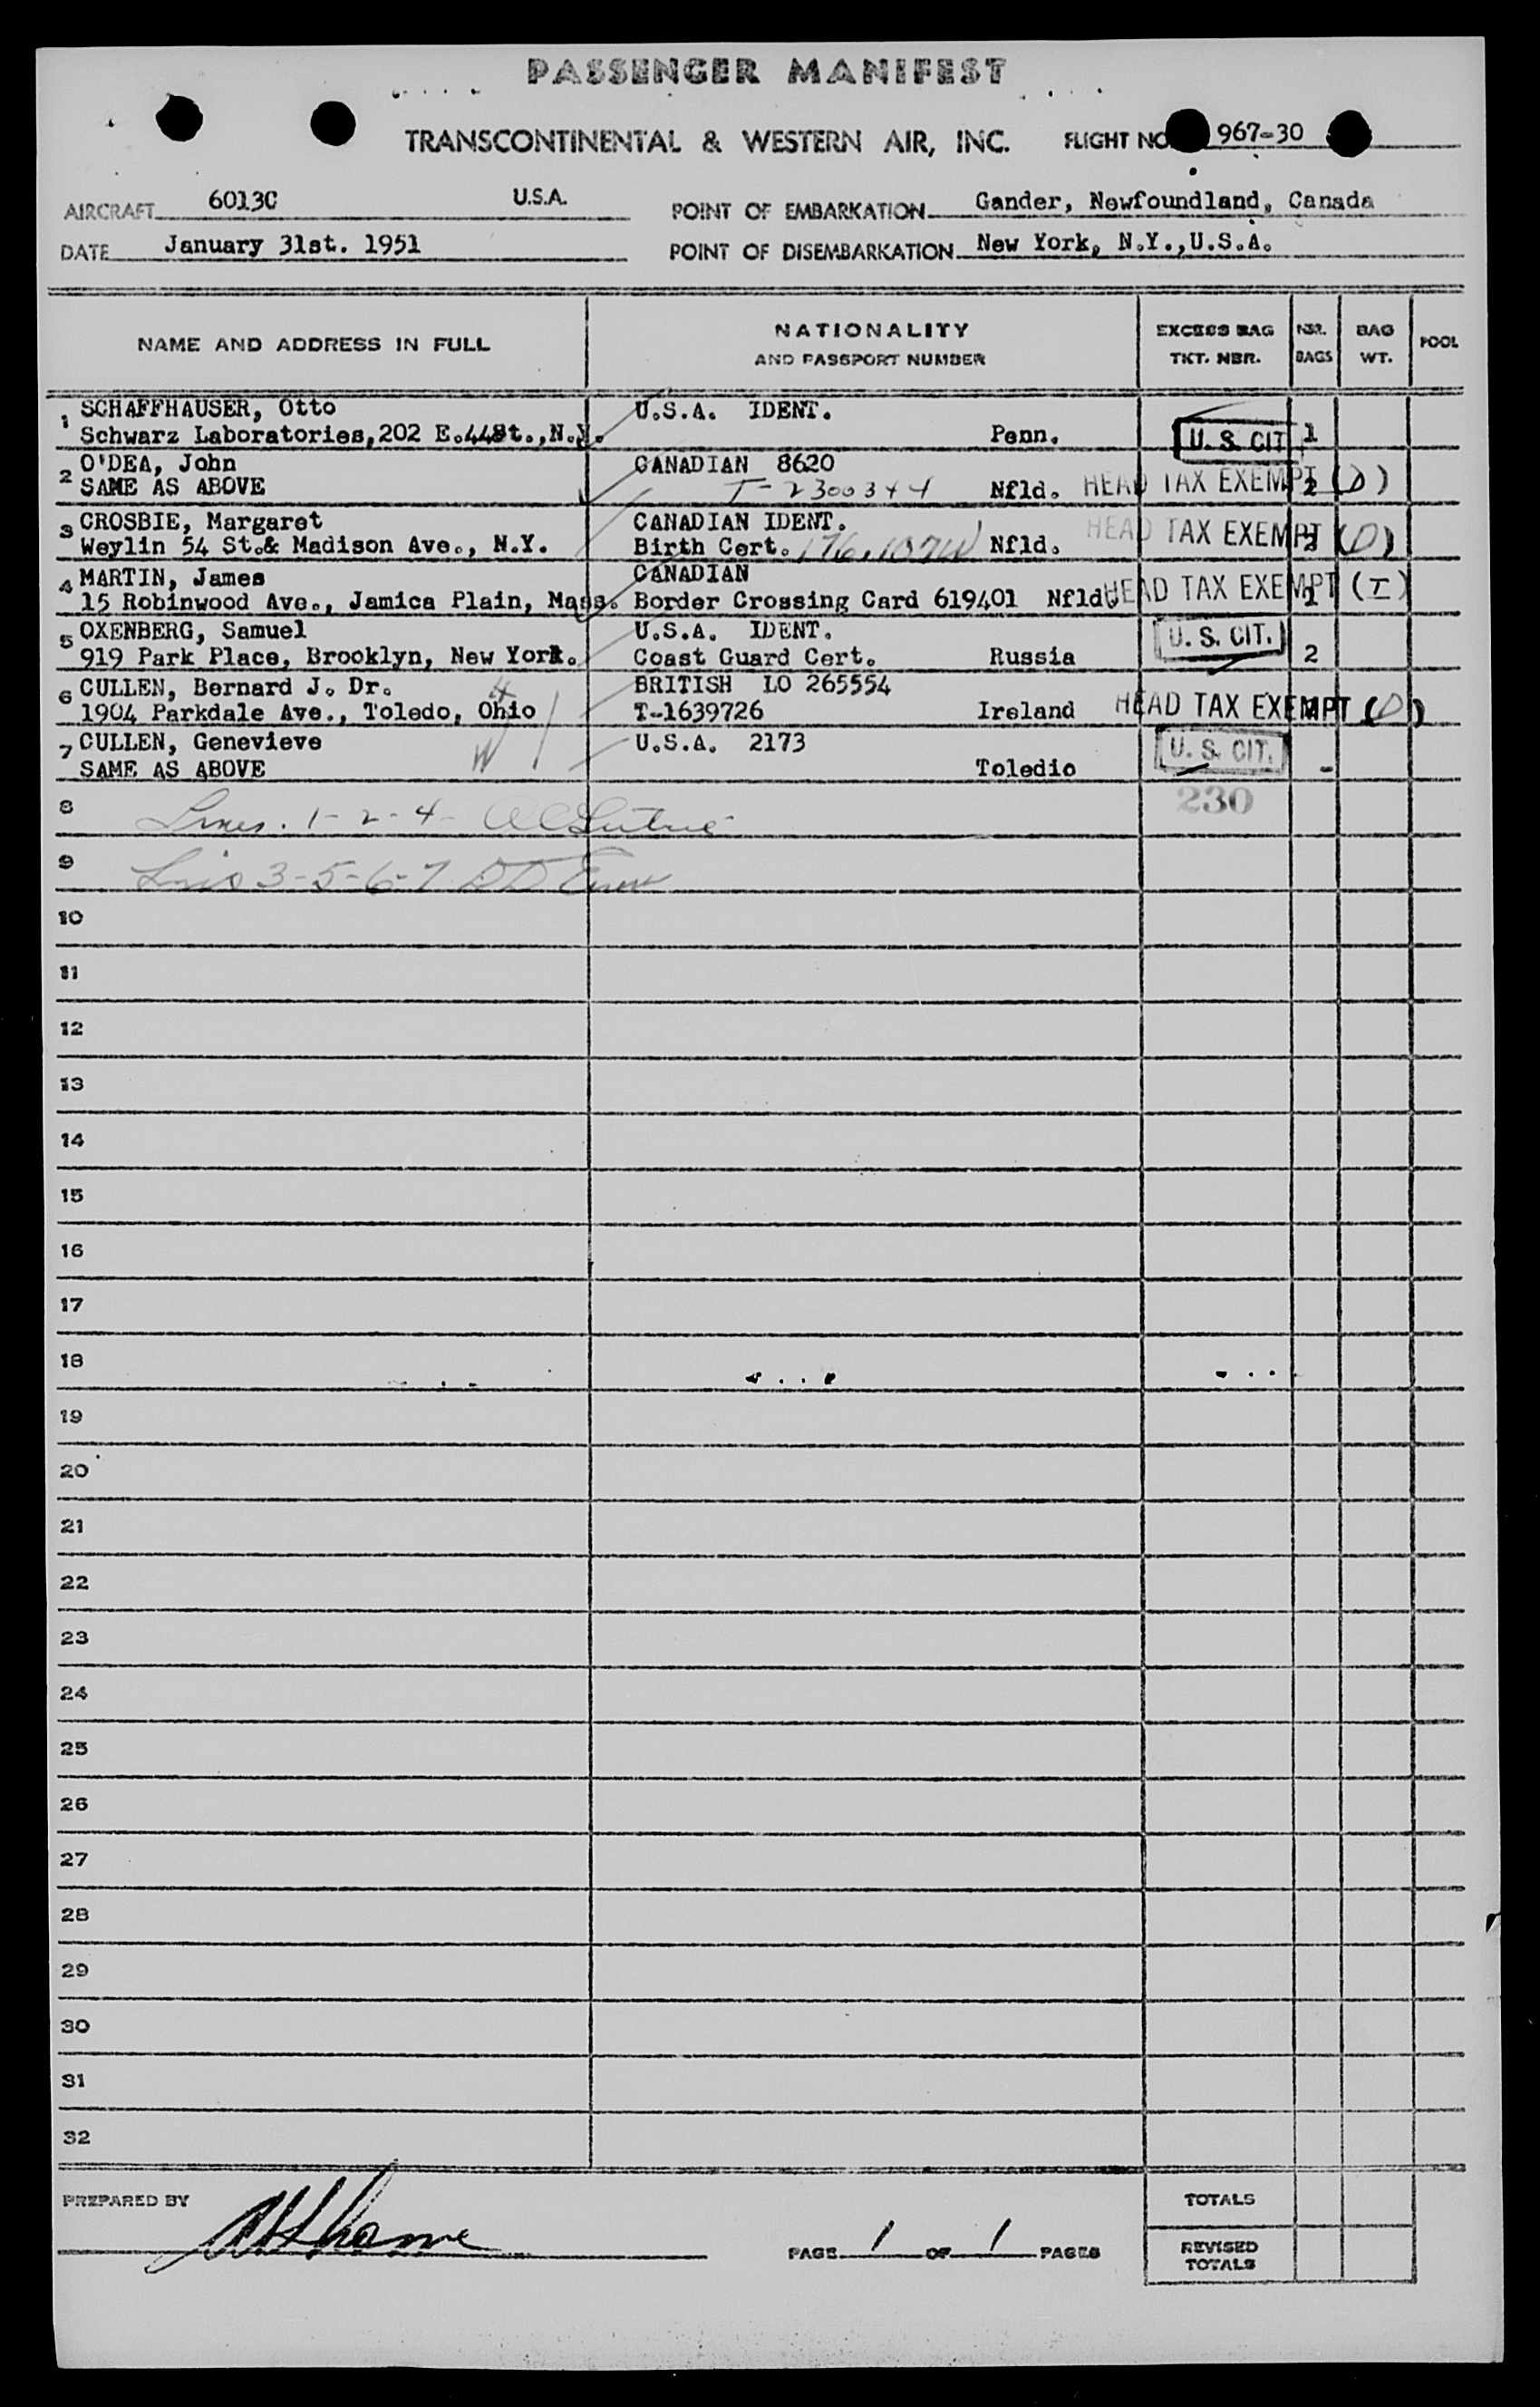 PASSENGER MANIFEST
TRANSCONTINENTAL & WESTERN AIR, INC. FLIGHT NO 967-30
AIRCRAFT 6013C U.S.A. POINT OF EMBARKATION Gander, Newfoundland, Canada
DATE January 31st. 1951 POINT OF DISEMBARKATION New York, N.Y.,U.S.A.
NAME AND ADDRESS IN FULL NATIONALITY AND PASSPORT NUMBER EXCESS BAG TKT. NBR. NBR. BAGS BAG WT. POOL
1 SCHAFFHAUSER, Otto U.S.A. IDENT.
Schwarz Laboratories,202 E.44St.,N.Y. Penn. U. S. CIT 1
2 O'DEA, John CANADIAN 8620
SAME AS ABOVE T-2300344 Nfld. HEAD TAX EXEMPT 2 (D)
3 CROSBIE, Margaret CANADIAN IDENT.
Weylin 54 St.& Madison Ave., N.Y. Birth Cert. Nfld. HEAD TAX EXEMPT (D)
4 MARTIN, James CANADIAN
15 Robinwood Ave., Jamica Plain, Mass. Border Crossing Card 619401 Nfld HEAD TAX EXEMPT (I)
5 OXENBERG, Samuel U.S.A. IDENT. U. S. CIT.
919 Park Place, Brooklyn, New York. Coast Guard Cert. Russia 2
6 CULLEN, Bernard J. Dr. BRITISH LO 265554
1904 Parkdale Ave., Toledo, Ohio T-1639726 Ireland HEAD TAX EXEMPT (D)
7 CULLEN, Genevieve U.S.A. 2173 U. S. CIT.
SAME AS ABOVE Toledio -
8 Lines. 1-2-4- 230
9 3-5-6-7
10
11
12
13
14
15
16
17
18
19
20
21
22
23
24
25
26
27
28
29
30
31
32
PREPARED BY TOTALS
PAGE 1 OF 1 PAGES REVISED TOTALS